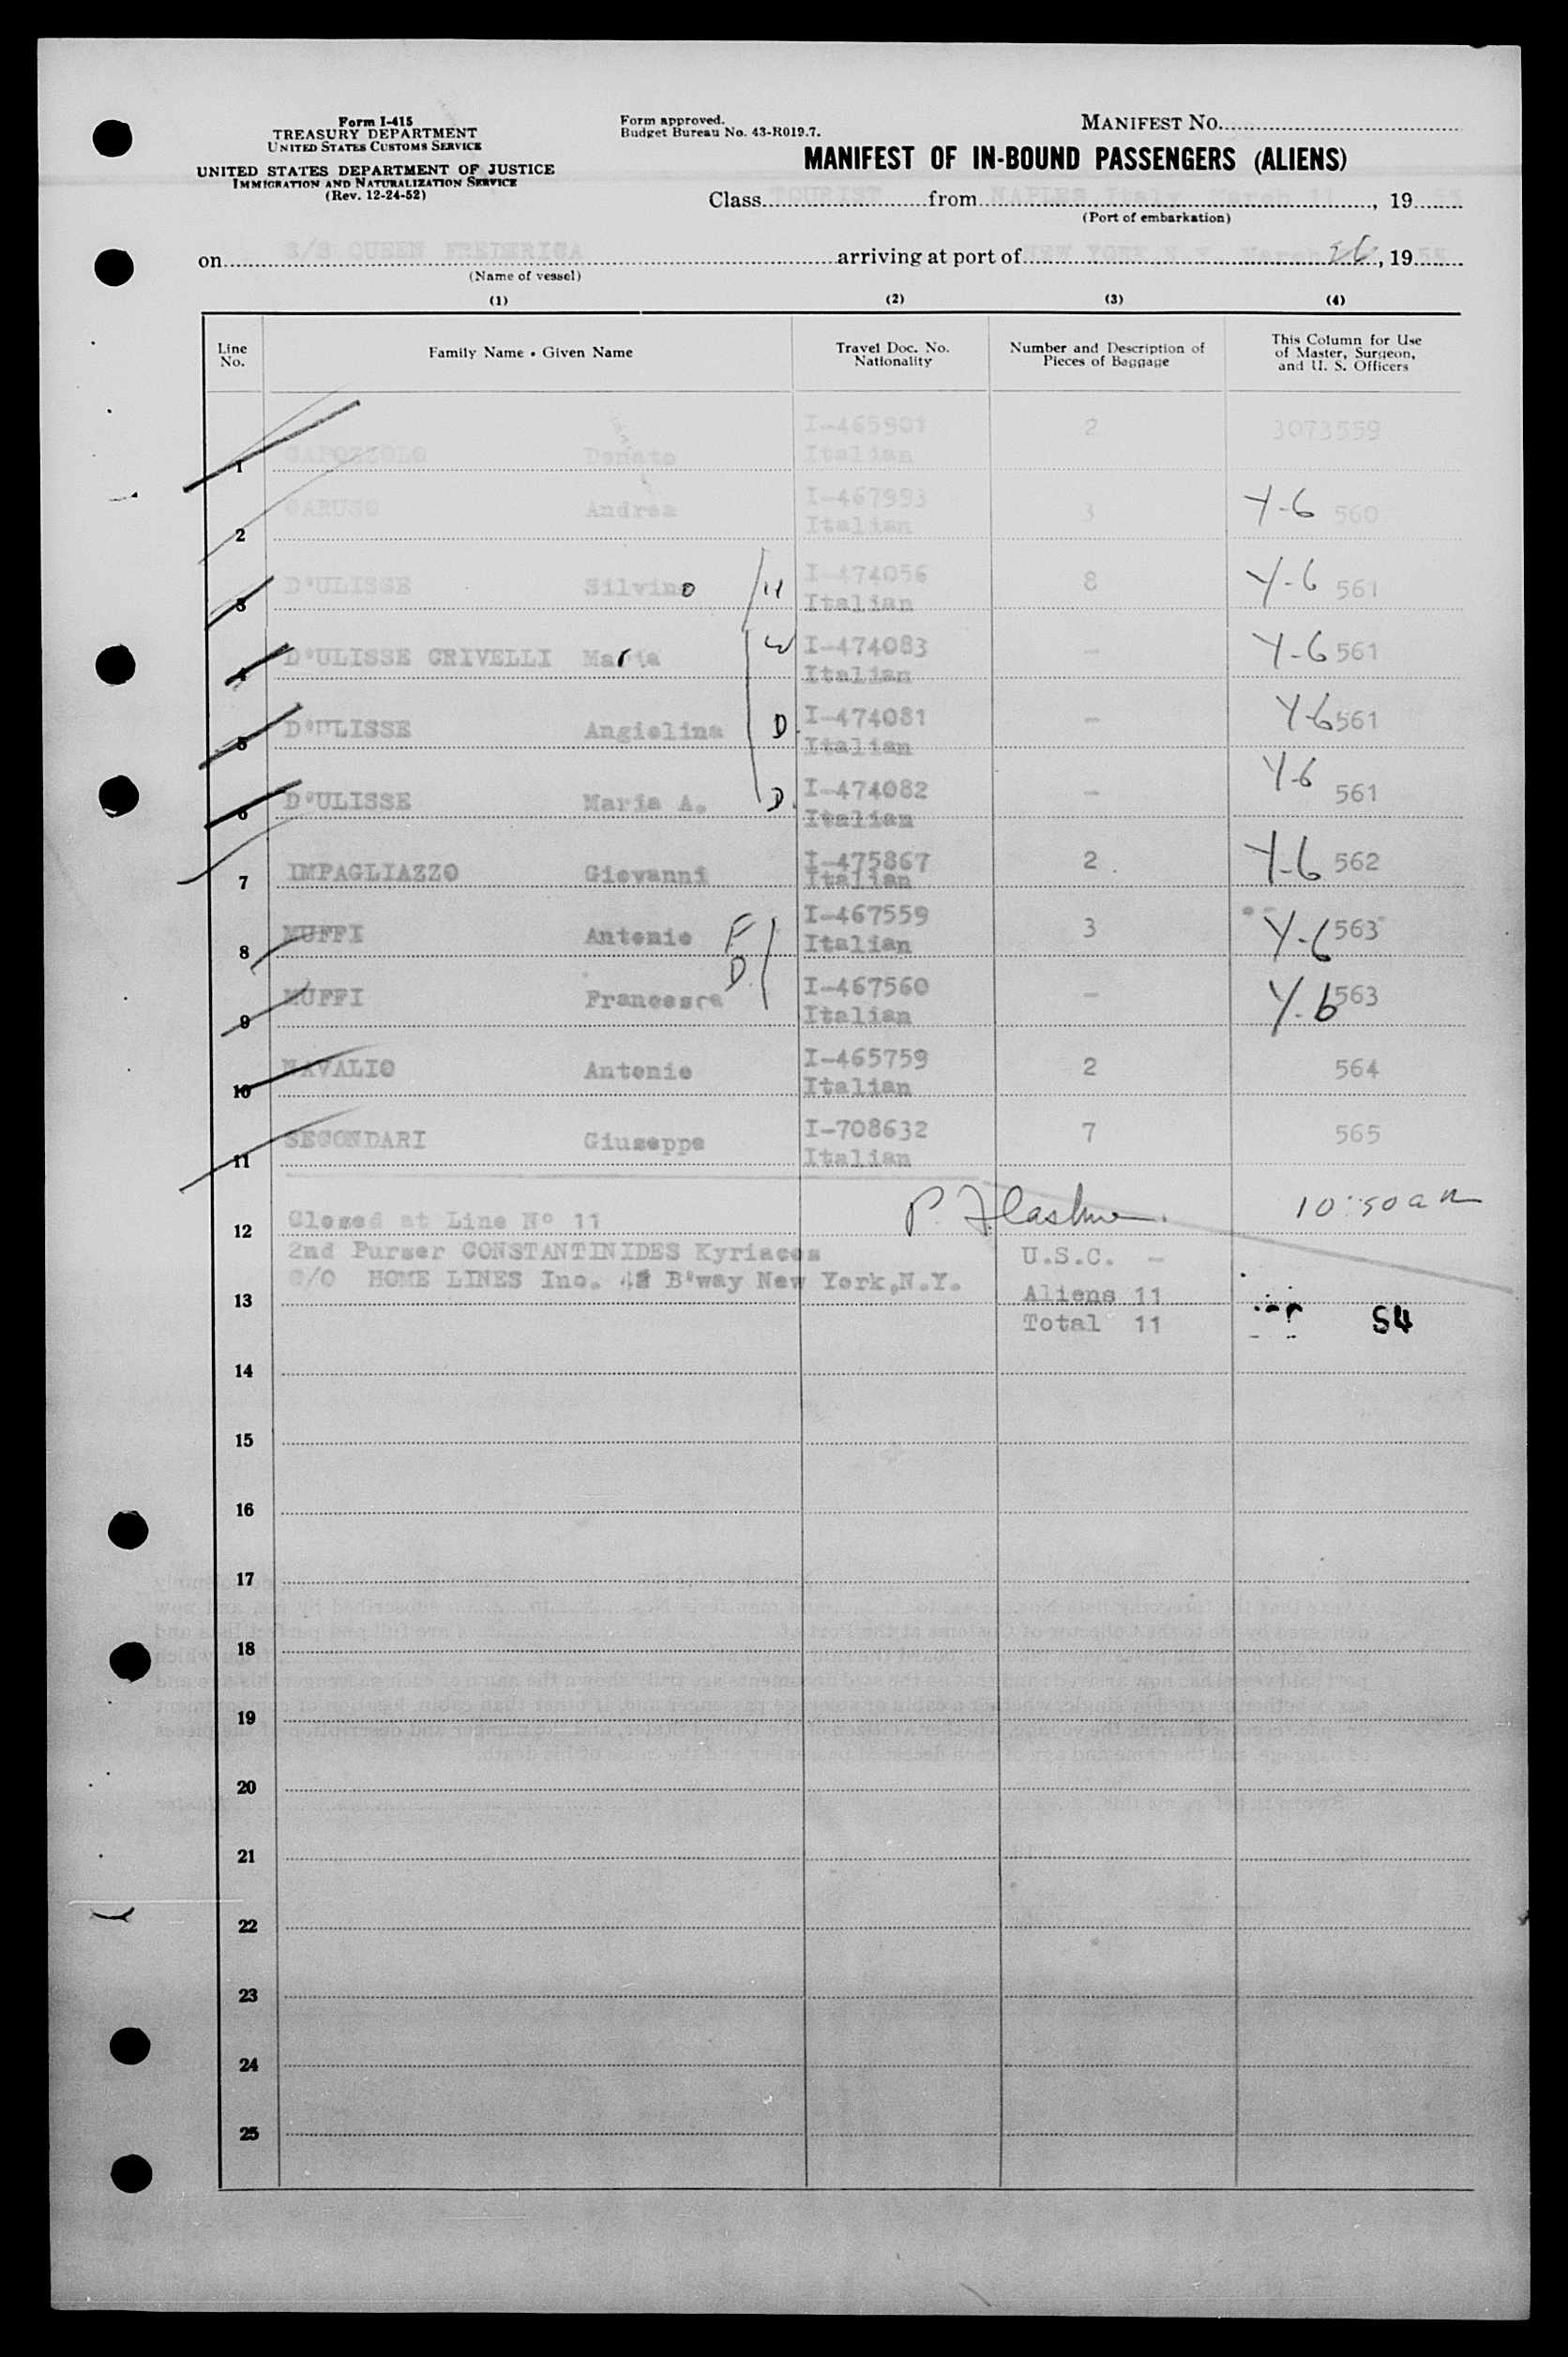 Form I-415
TREASURY DEPARTMENT
UNITED STATES CUSTOMS SERVICE
UNITED STATES DEPARTMENT OF JUSTICE
IMMIGRATION AND NATURALIZATION SERVICE
(Rev. 12-24-52)
Form approved.
Budget Bureau No. 43-R019.7.
MANIFEST NO.
MANIFEST OF IN-BOUND PASSENGERS (ALIENS)
Class TOURIST from NAPLES Italy March 11, 1955
(Port of embarkation)
on S/S QUEEN FREDERICA arriving at port of NEW YORK N.Y. March 26, 1955
(Name of vessel)
(1) (2) (3) (4)
Line No. Family Name • Given Name Travel Doc. No. Nationality Number and Description of Pieces of Baggage This Column for Use of Master, Surgeon, and U. S. Officers
1 CAPOZZOLO Donato I-465901 Italian 2 3073559
2 CARUSO Andrea I-467993 Italian 3 Y-6 560
3 D'ULISSE Silvino H I-474056 Italian 8 Y-6 561
4 D'ULISSE CRIVELLI Maria W I-474083 Italian - Y-6 561
5 D'ULISSE Angiolina D. I-474081 Italian - Y-6 561
6 D'ULISSE Maria A. D. I-474082 Italian - Y-6 561
7 IMPAGLIAZZO Giovanni I-475867 Italian 2 Y-6 562
8 MUFFI Antonio F I-467559 Italian 3 Y-6 563
9 MUFFI Francesca D. I-467560 Italian - Y-6 563
10 NAVALIO Antonio I-465759 Italian 2 564
11 SECONDARI Giuseppe I-708632 Italian 7 565
12 Closed at Line No 11 10:50 am
2nd Purser CONSTANTINIDES Kyriacos U.S.C. -
13 C/O HOME LINES Inc. 42 B'way New York,N.Y. Aliens 11
Total 11 S4
14
15
16
17
18
19
20
21
22
23
24
25